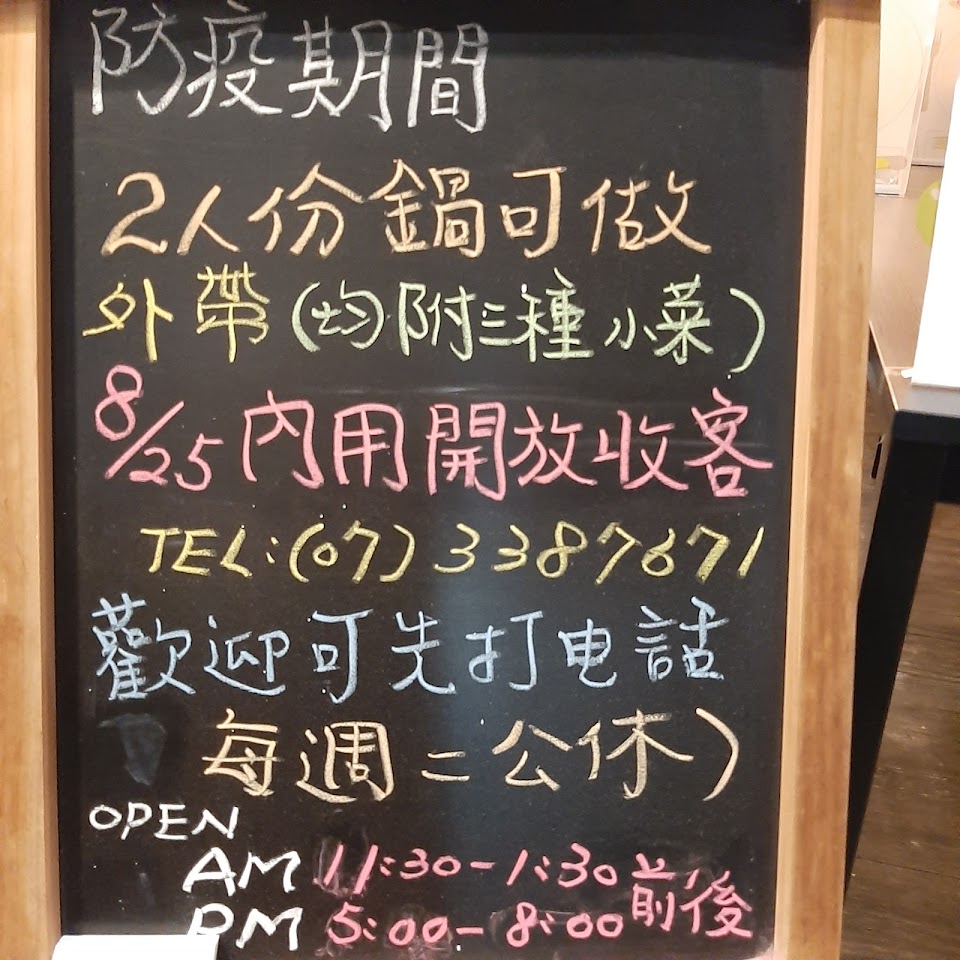 防疫期間
2人份鍋可做
外帶(均附三種小菜)
8/25內用開放收客
TEL:(07)3387671
歡迎可先打电話
每週二公休)
OPEN
AM 11:30-1:30前後
PM 5:00-8:00